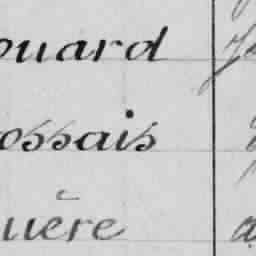 ouard
ossais
uère